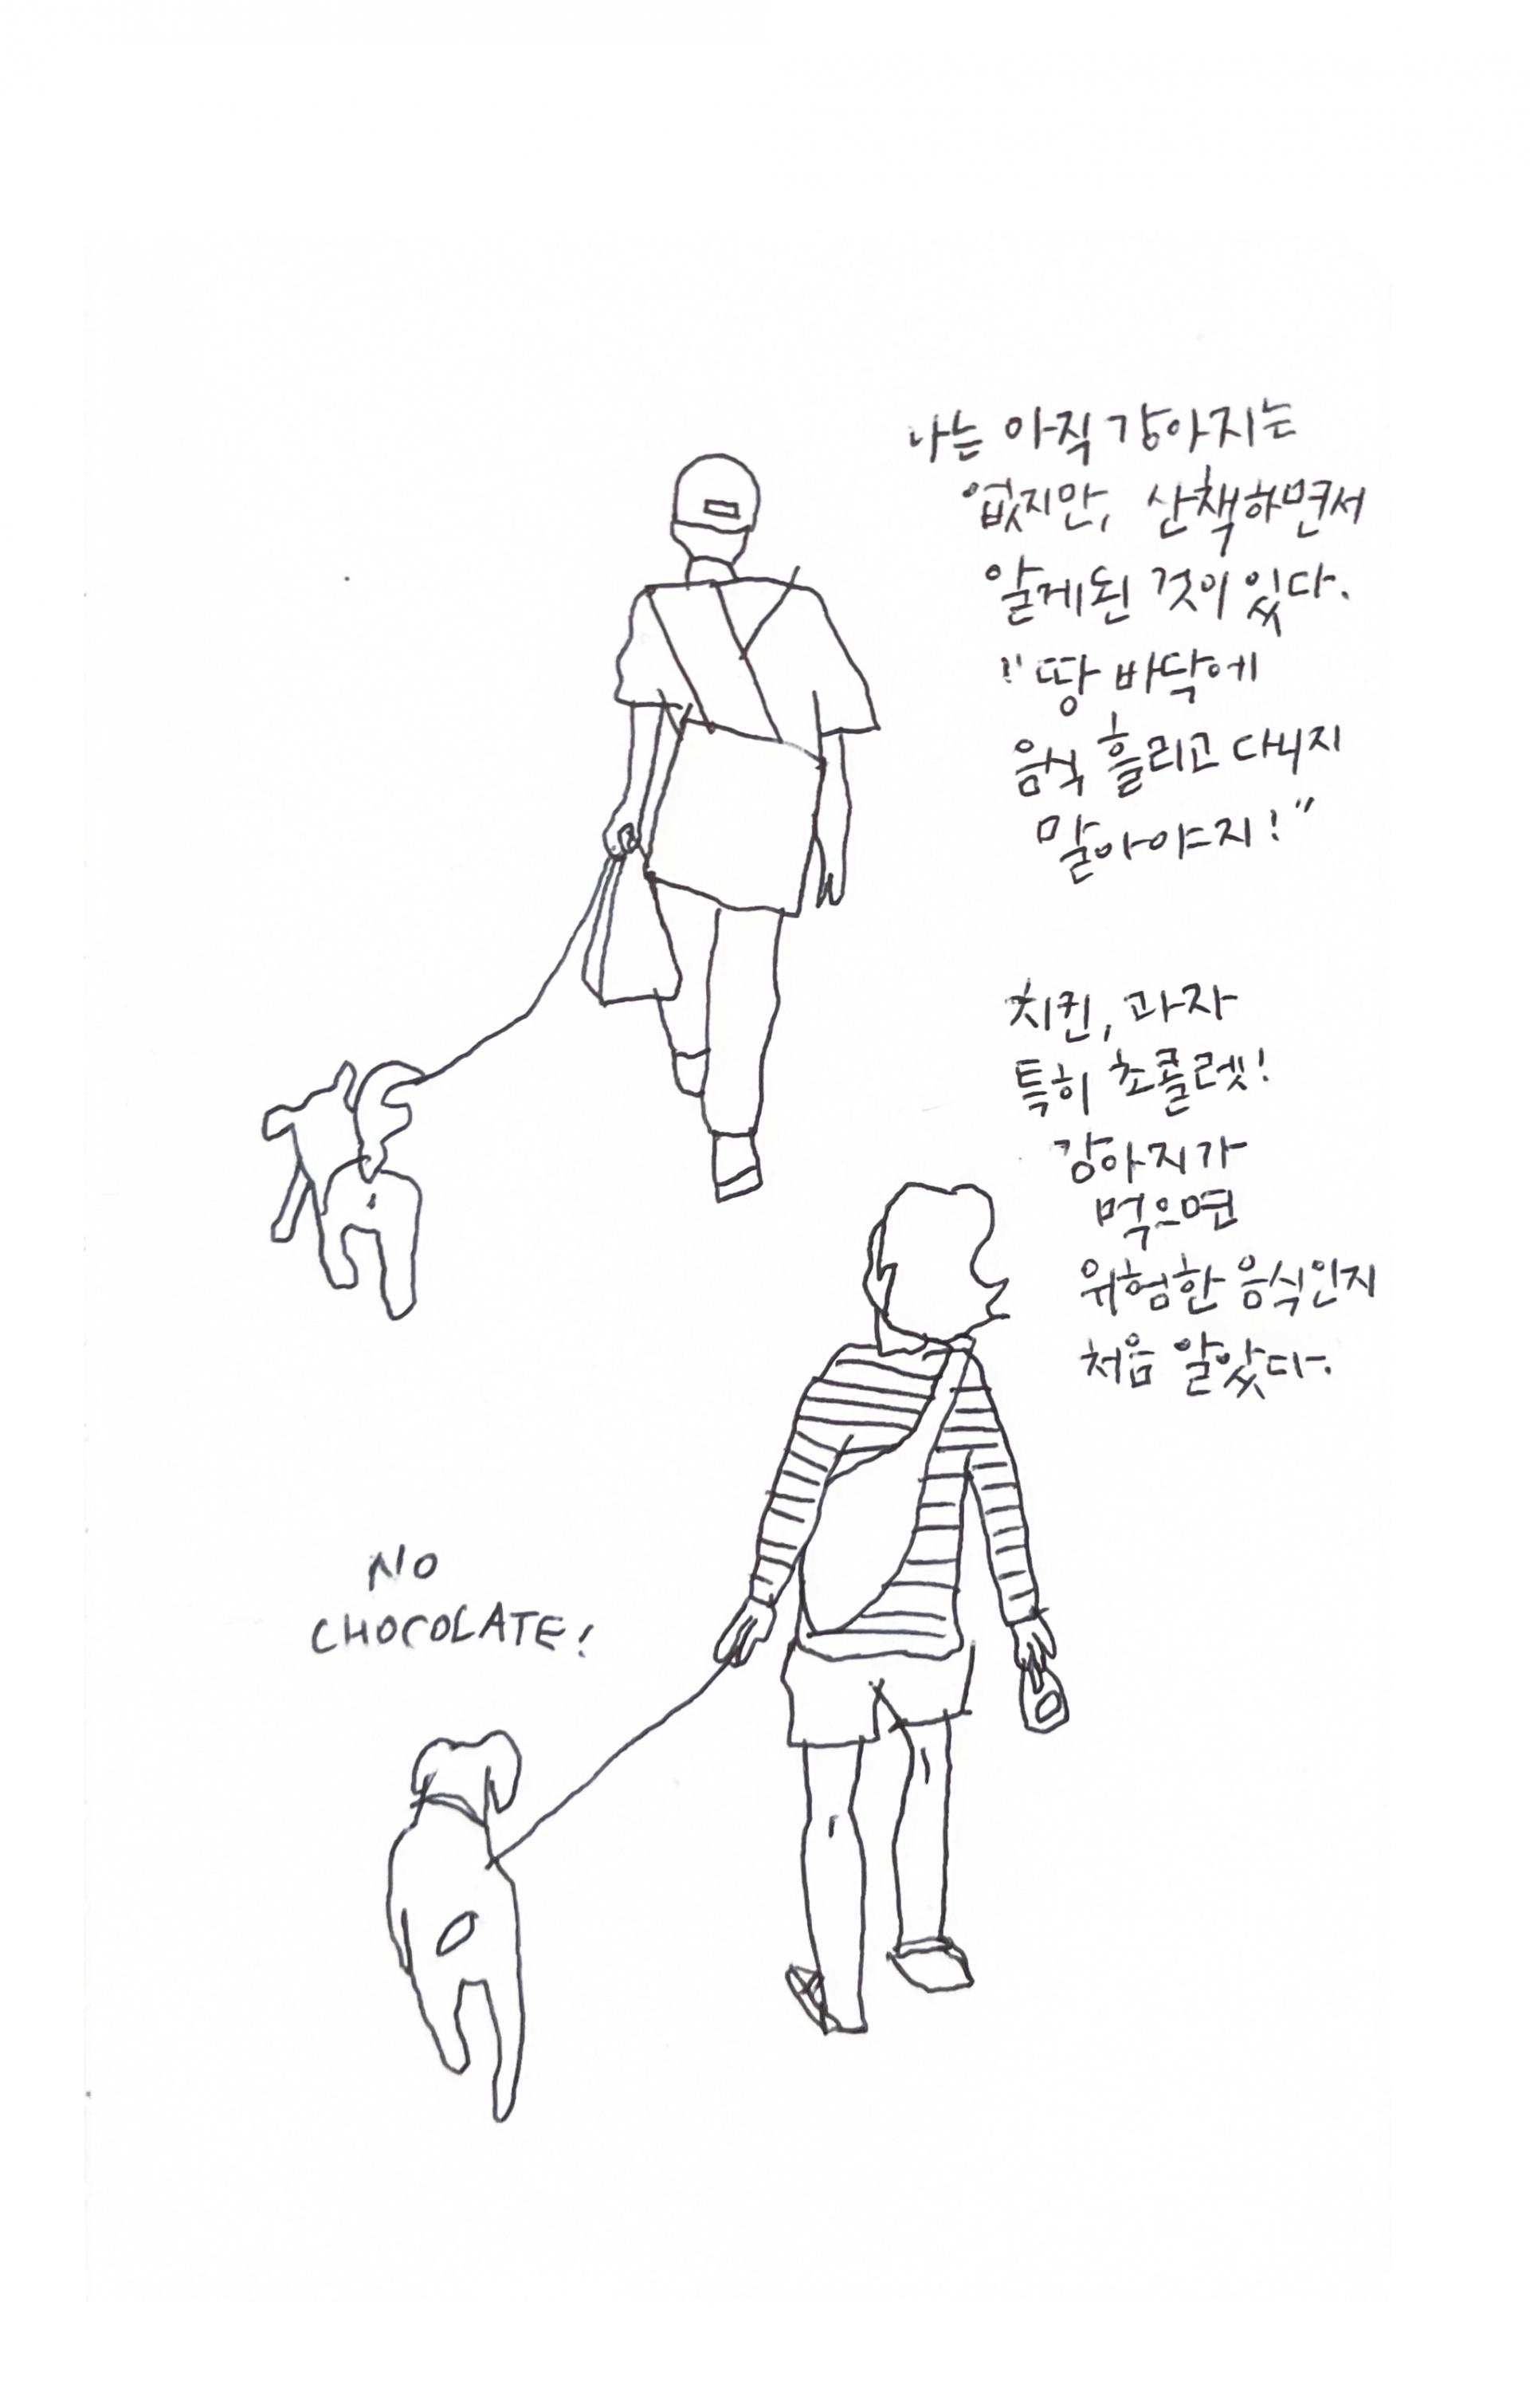 나는 아직 강아지는
없지만, 산책하면서
알게된 것이 있다.
"땅바닥에
음식 흘리고 다니지
말아야지!"
치킨, 과자
특히 초콜렛!
강아지가
먹으면
위험한 음식인지
처음 알았다.
NO
CHOCOLATE!